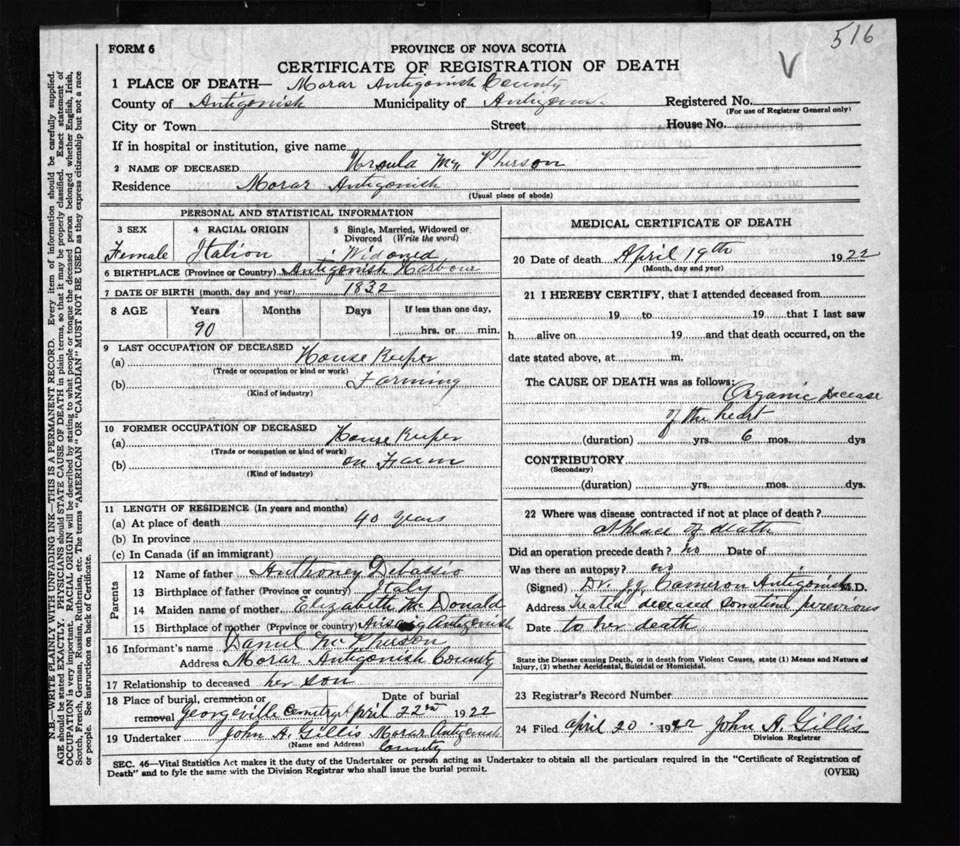 516
V
FORM 6
PROVINCE OF NOVA SCOTIA
CERTIFICATE OF REGISTRATION OF DEATH
1 PLACE OF DEATH— Morar Antigonish County
County of Antigonish Municipality of Antigonis. Registered No.
(For use of Registrar General only)
City or Town Street House No.
If in hospital or institution, give name
2 NAME OF DECEASED Ursula Mc Pherson
Residence Morar Antigonish
(Usual place of abode)
PERSONAL AND STATISTICAL INFORMATION
3 SEX 4 RACIAL ORIGIN 5 Single, Married, Widowed or Divorced (Write the word)
Female Italion Widowed
6 BIRTHPLACE (Province or Country) Antigonish Harbour
7 DATE OF BIRTH (month, day and year) 1832
8 AGE Years Months Days If less than one day,
90 hrs. or min.
9 LAST OCCUPATION OF DECEASED
(a) House Keeper
(Trade or occupation or kind or work)
(b) Farming
(Kind of industry)
10 FORMER OCCUPATION OF DECEASED
(a) House Keeper
(Trade or occupation or kind of work)
(b) on Farm
(Kind of industry)
11 LENGTH OF RESIDENCE (In years and months)
(a) At place of death 40 years
(b) In province
(c) In Canada (if an immigrant)
Parents
12 Name of father Anthoney Debassio
13 Birthplace of father (Province or country) Italy
14 Maiden name of mother Elizabeth Mc Donald
15 Birthplace of mother (Province or country) Arisaig Antigonish
16 Informant's name Daniel Mc Pherson
Address Morar Antigonish County
17 Relationship to deceased her son
18 Place of burial, cremation or removal Georgeville Cemetry Date of burial April 22nd 1922
19 Undertaker John A. Gillis Morar Antigonish County
(Name and Address)
MEDICAL CERTIFICATE OF DEATH
20 Date of death April 19th 1922
(Month, day and year)
21 I HEREBY CERTIFY, that I attended deceased from
19 to 19 that I last saw
h alive on 19 and that death occurred, on the
date stated above, at m.
The CAUSE OF DEATH was as follows:
Organic Decease
of the heart
(duration) yrs. 6 mos. dys
CONTRIBUTORY
(Secondary)
(duration) yrs. mos. dys.
22 Where was disease contracted if not at place of death?
At place of death
Did an operation precede death? no Date of
Was there an autopsy? no
(Signed) Dr. J.J. Cameron Antigonish M.D.
Address Treated deceased sometime previous
Date to her death
State the Disease causing Death, or in death from Violent Causes, state (1) Means and Nature of
Injury, (2) whether Accidental, Suicidal or Homicidal.
23 Registrar's Record Number
24 Filed April 20 1922 John A. Gillis
Division Registrar
SEC. 46—Vital Statistics Act makes it the duty of the Undertaker or person acting as Undertaker to obtain all the particulars required in the "Certificate of Registration of
Death" and to fyle the same with the Division Registrar who shall issue the burial permit.
(OVER)
N.B.—WRITE PLAINLY WITH UNFADING INK—THIS IS A PERMANENT RECORD. Every item of information should be carefully supplied.
AGE should be stated EXACTLY. PHYSICIANS should STATE CAUSE OF DEATH in plain terms, so that it may be properly classified. Exact statement of
OCCUPATION is very important. RACIAL ORIGIN will be described by stating to what people or tongue the deceased person belonged whether English, Irish,
Scotch, French, German, Russian, Ruthenian, etc. The terms "AMERICAN" OR "CANADIAN" MUST NOT BE USED as they express citizenship but not a race
or people. See instructions on back of Certificate.